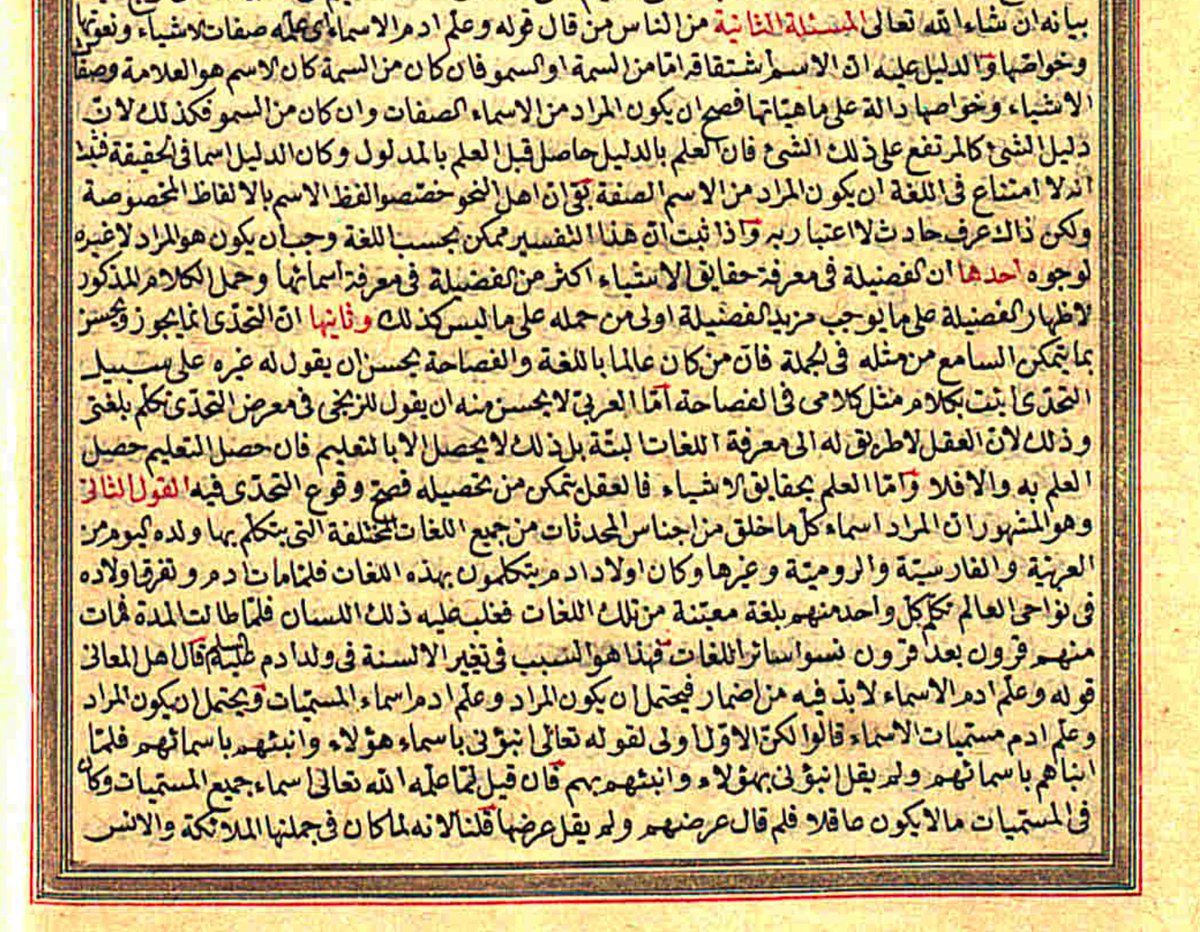 بيانه ان شاء الله تعالى المسئلة الثانية من الناس من قال قوله وعلم ادم الاسماء اى علمه صفات الاشياء ونعوتها
وخواصها والدليل عليه ان الاسم اشتقاقه اما من السمة او السمو فان كان من السمة كان الاسم هو العلامة وصفات
الاشياء وخواصها دالة على ماهياتها فصح ان يكون المراد من الاسماء الصفات وان كان من السمو فكذلك لان
دليل الشئ كالمرتفع على ذلك الشئ فان العلم بالدليل حاصل قبل العلم بالمدلول وكان الدليل اسما فى الحقيقة فثبت
انه لا امتناع فى اللغة ان يكون المراد من الاسم الصفة بقى ان اهل النحو خصصوا لفظ الاسم بالالفاظ المخصوصة
ولكن ذاك عرف حادث لا اعتبار به واذا ثبت ان هذا التفسير ممكن بحسب اللغة وجب ان يكون هو المراد لا غيره
لوجوه احدها ان الفضيلة فى معرفة حقايق الاشياء اكثر من الفضيلة فى معرفة اسمائها وحمل الكلام المذكور
لاظهار الفضيلة على ما يوجب مزيد الفضيلة اولى من حمله على ما ليس كذلك وثانيها ان التحدى انما يجوز ويحسن
بما يتمكن السامع من مثله فى الجملة فان من كان عالما باللغة والفصاحة يحسن ان يقول له غيره على سبيل
التحدى ائت بكلام مثل كلامى فى الفصاحة اما العربى لا يحسن منه ان يقول للزنجى فى معرض التحدى تكلم بلغتى
وذلك لان العقل لا طريق له الى معرفة اللغات البتة بل ذلك لا يحصل الا بالتعليم فان حصل التعليم حصل
العلم به والا فلا واما العلم بحقايق الاشياء فالعقل يتمكن من تحصيله فصح وقوع التحدى فيه القول الثانى
وهو المشهور ان المراد اسماء كل ما خلق من اجناس المحدثات من جميع اللغات المختلفة التى يتكلم بها ولده اليوم من
العربية والفارسية والرومية وغيرها وكان اولاد ادم يتكلمون بهذه اللغات فلما مات ادم وتفرق اولاده
فى نواحى العالم تكلم كل واحد منهم بلغة معينة من تلك اللغات فغلب عليه ذلك اللسان فلما طالت المدة فمات
منهم قرون بعد قرون نسوا سائر اللغات فهذا هو السبب فى تغير الالسنة فى ولد ادم عليه السلم قال اهل المعانى
قوله وعلم ادم الاسماء لا بد فيه من اضمار فيحتمل ان يكون المراد وعلم ادم اسماء المسميات ويحتمل ان يكون المراد
وعلم ادم مسميات الاسماء قالوا لكن الاول اولى لقوله تعالى انبؤنى باسماء هؤلاء وانبئهم باسمائهم فلما
انباهم باسمائهم ولم يقل انبؤنى بهؤلاء وانبئهم بهم فان قيل لما علمه الله تعالى اسماء جميع المسميات وكان
فى المسميات ما لا يكون عاقلا فلم قال عرضهم ولم يقل عرضها قلنا لانه لما كان فى جملتها الملائكة والانس